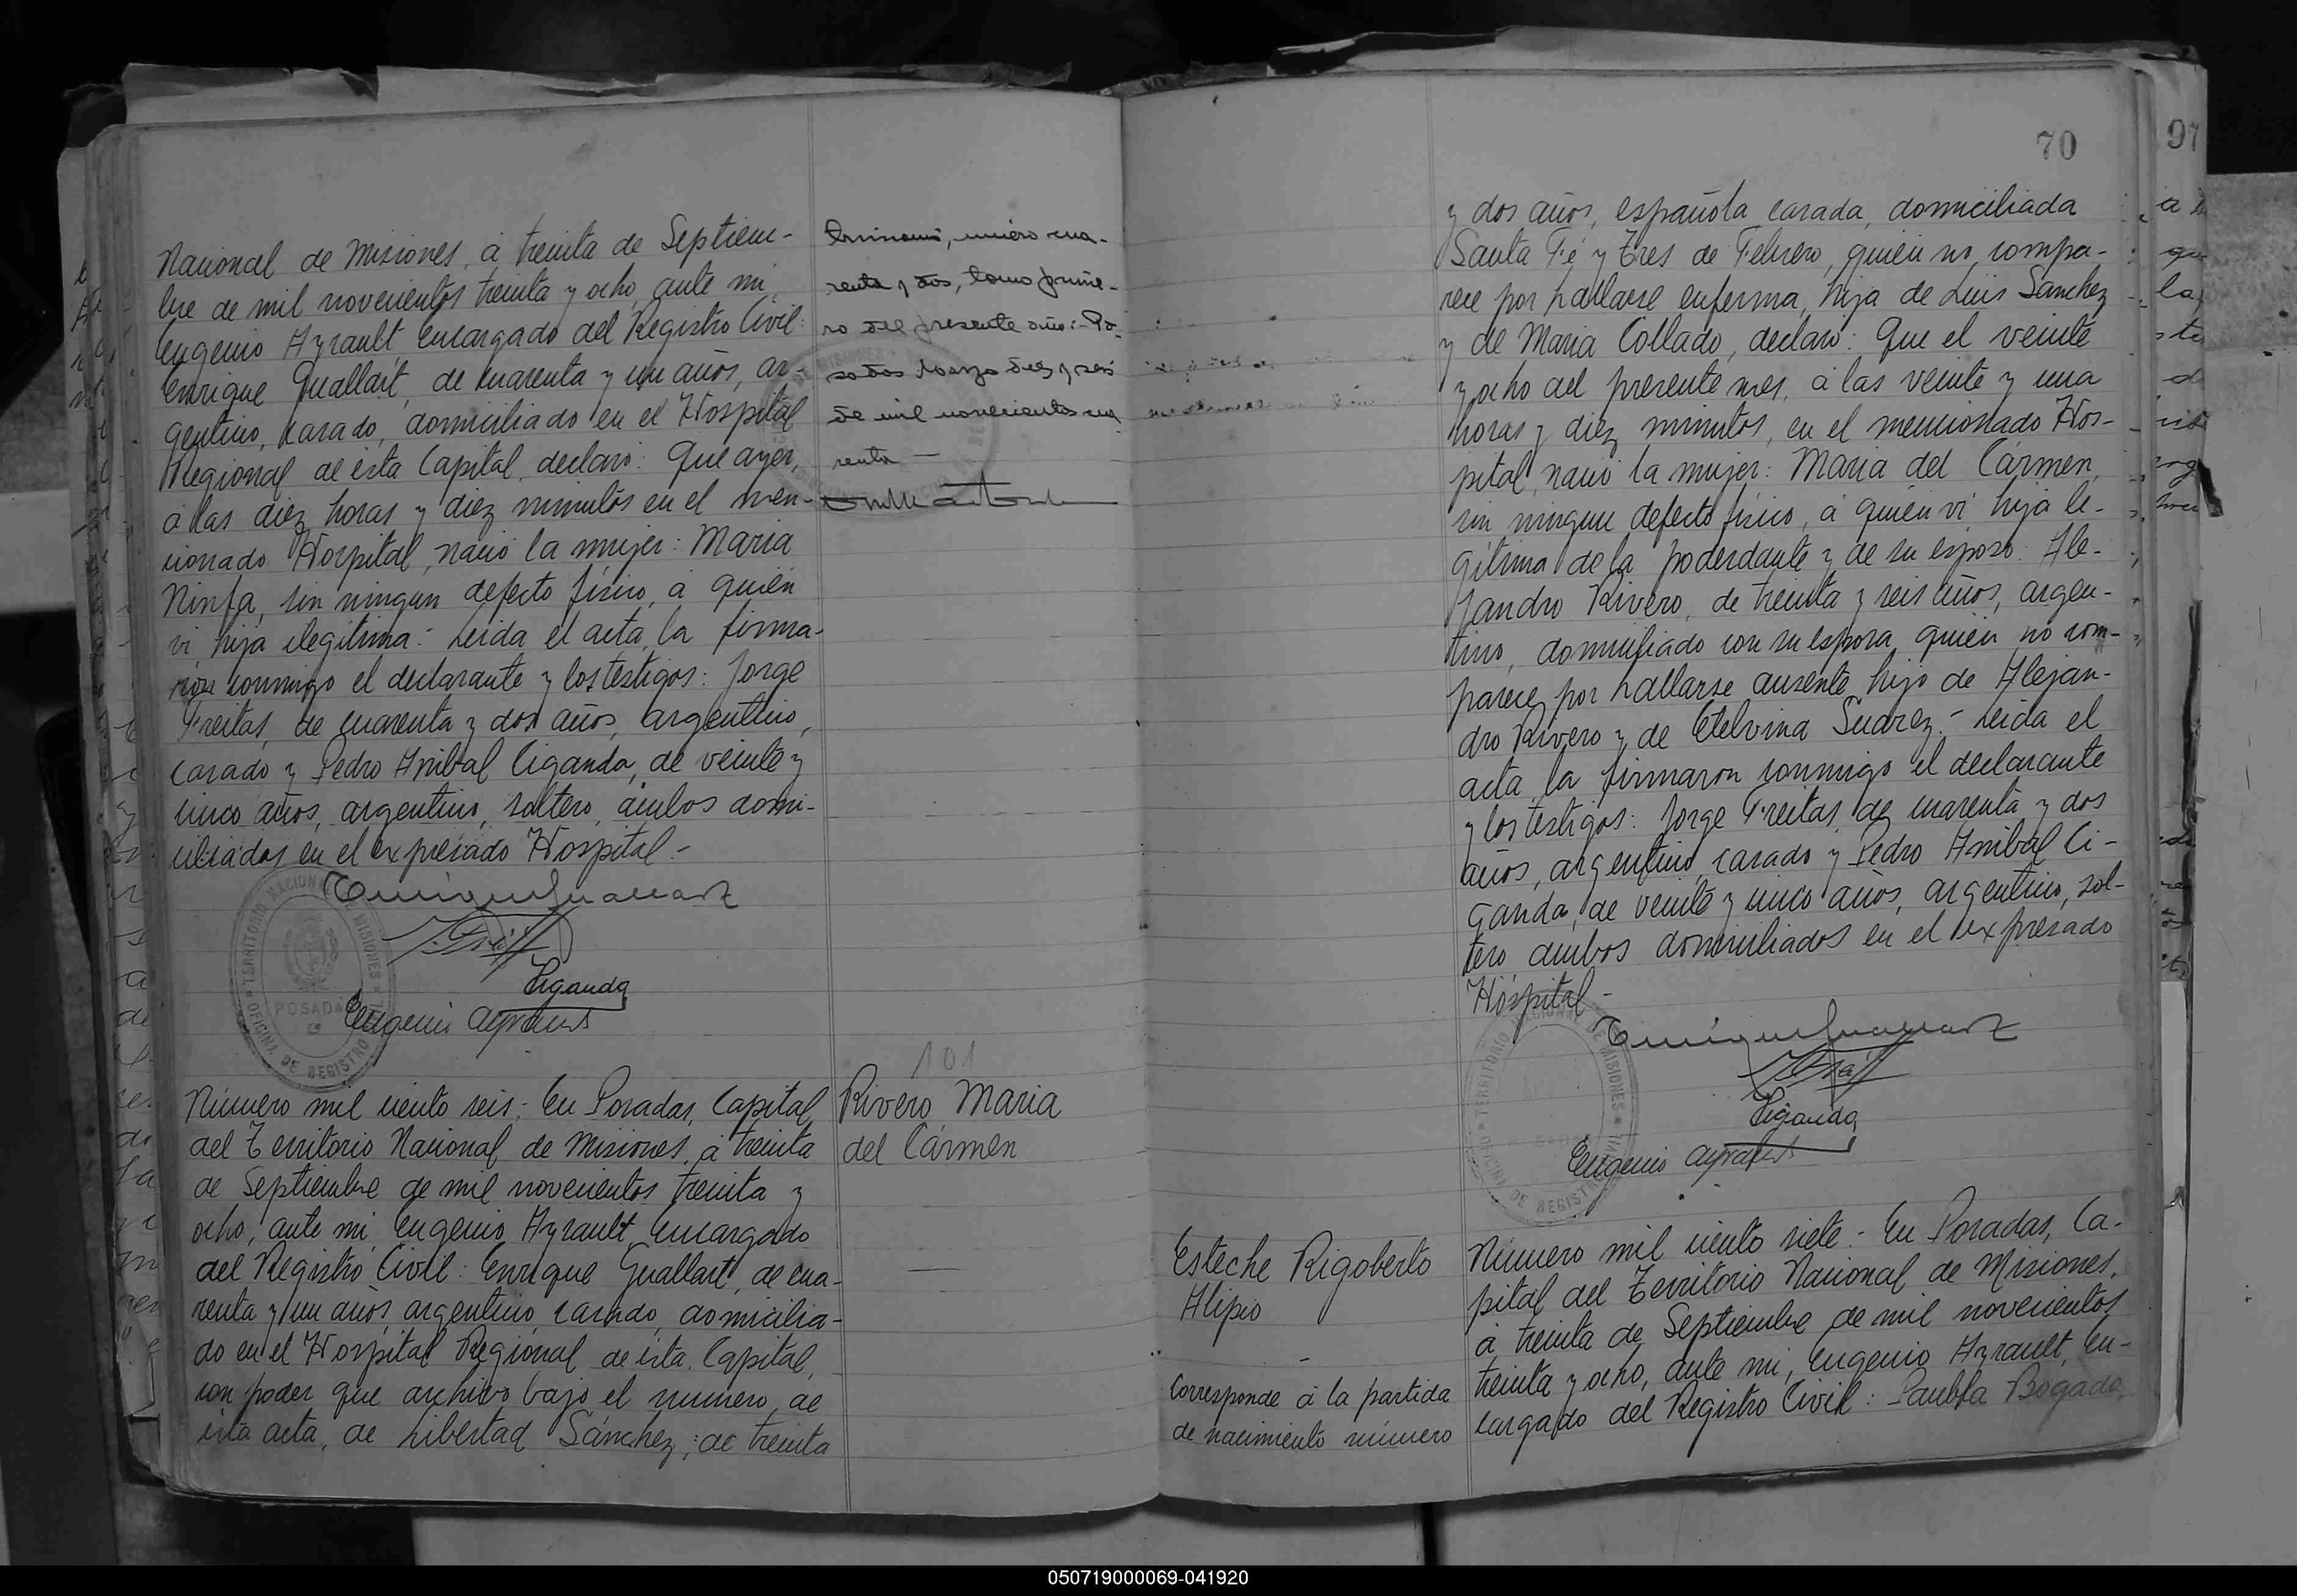 Nacional de Misiones, á treinta de Septiem-
bre de mil novecientos treinta y ocho, ante mi,
Eugenio Ayrault, Encargado del Registro Civil:
Enrique Guallart, de cuarenta y un años, ar-
gentino, casado, domiciliado en el Hospital
Regional de ésta Capital, declaró: Que ayer,
á las diez horas y diez minutos en el men-
cionado Hospital, nació la mujer: Maria
Ninfa, sin ningun defecto físico, á quién
vi, hija ilegítima.- Leida el acta, la firma-
ron conmigo el declarante y los testigos: Jorge
Freitas, de cuarenta y dos años, argentino,
casado y Pedro Anibal Ciganda, de veinte y
cinco años, argentino, soltero, ámbos domi-
ciliados en el expresado Hospital.-
Enrique Guallart
Ciganda
Eugenio Ayrault
TERRITORIO NACIONAL DE MISIONES
POSADAS
OFICINA DE REGISTRO CIVIL
número cua-
renta y dos, tomo prime-
ro del presente año:- Po-
sadas Marzo diez y seis
de mil novecientos cua
renta —
101
Rivero Maria
del Cármen
Número mil ciento seis.- En Posadas, Capital
del Territorio Nacional de Misiones, á treinta
de Septiembre de mil novecientos treinta y
ocho, ante mi, Eugenio Ayrault, Encargado
del Registro Civil: Enrique Guallart, de cua-
renta y un años, argentino, casado, domicilia-
do en el Hospital Regional de ésta Capital,
con poder que archivo bajo el numero de
ésta acta, de Libertad Sánchez, de treinta
70
97
y dos años, española casada, domiciliada
Santa Fé y Tres de Febrero, quién no compa-
rece por hallarse enferma, hija de Luis Sanchez
y de Maria Collado, declaró: Que el veinte
y ocho del presente mes, á las veinte y una
horas y diez minutos, en el mencionado Hos-
pital, nació la mujer: Maria del Cármen,
sin ningun defecto físico, á quién vi, hija le-
gítima de la poderdante y de su esposo: Ale-
jandro Rivero, de treinta y seis años, argen-
tino, domiciliado con su esposa, quién no com-
parece por hallarse ausente, hijo de Alejan-
dro Rivero y de Etelvina Suarez.- Leida el
acta, la firmaron conmigo el declarante
y los testigos: Jorge Freitas, de cuarenta y dos
años, argentino, casado y Pedro Anibal Ci-
ganda, de veinte y cinco años, argentino, sol-
tero, ámbos domiciliados en el expresado
Hospital.-
Enrique Guallart
Ciganda
Eugenio Ayrault
TERRITORIO NACIONAL DE MISIONES
OFICINA DE REGISTRO
Esteche Rigoberto
Alipio
-
Corresponde á la partida
de nacimiento número
Número mil ciento siete.- En Posadas, Ca-
pital del Territorio Nacional de Misiones,
á treinta de Septiembre de mil novecientos
treinta y ocho, ante mi, Eugenio Ayrault, En-
cargado del Registro Civil: Paubla Bogado,
050719000069-041920